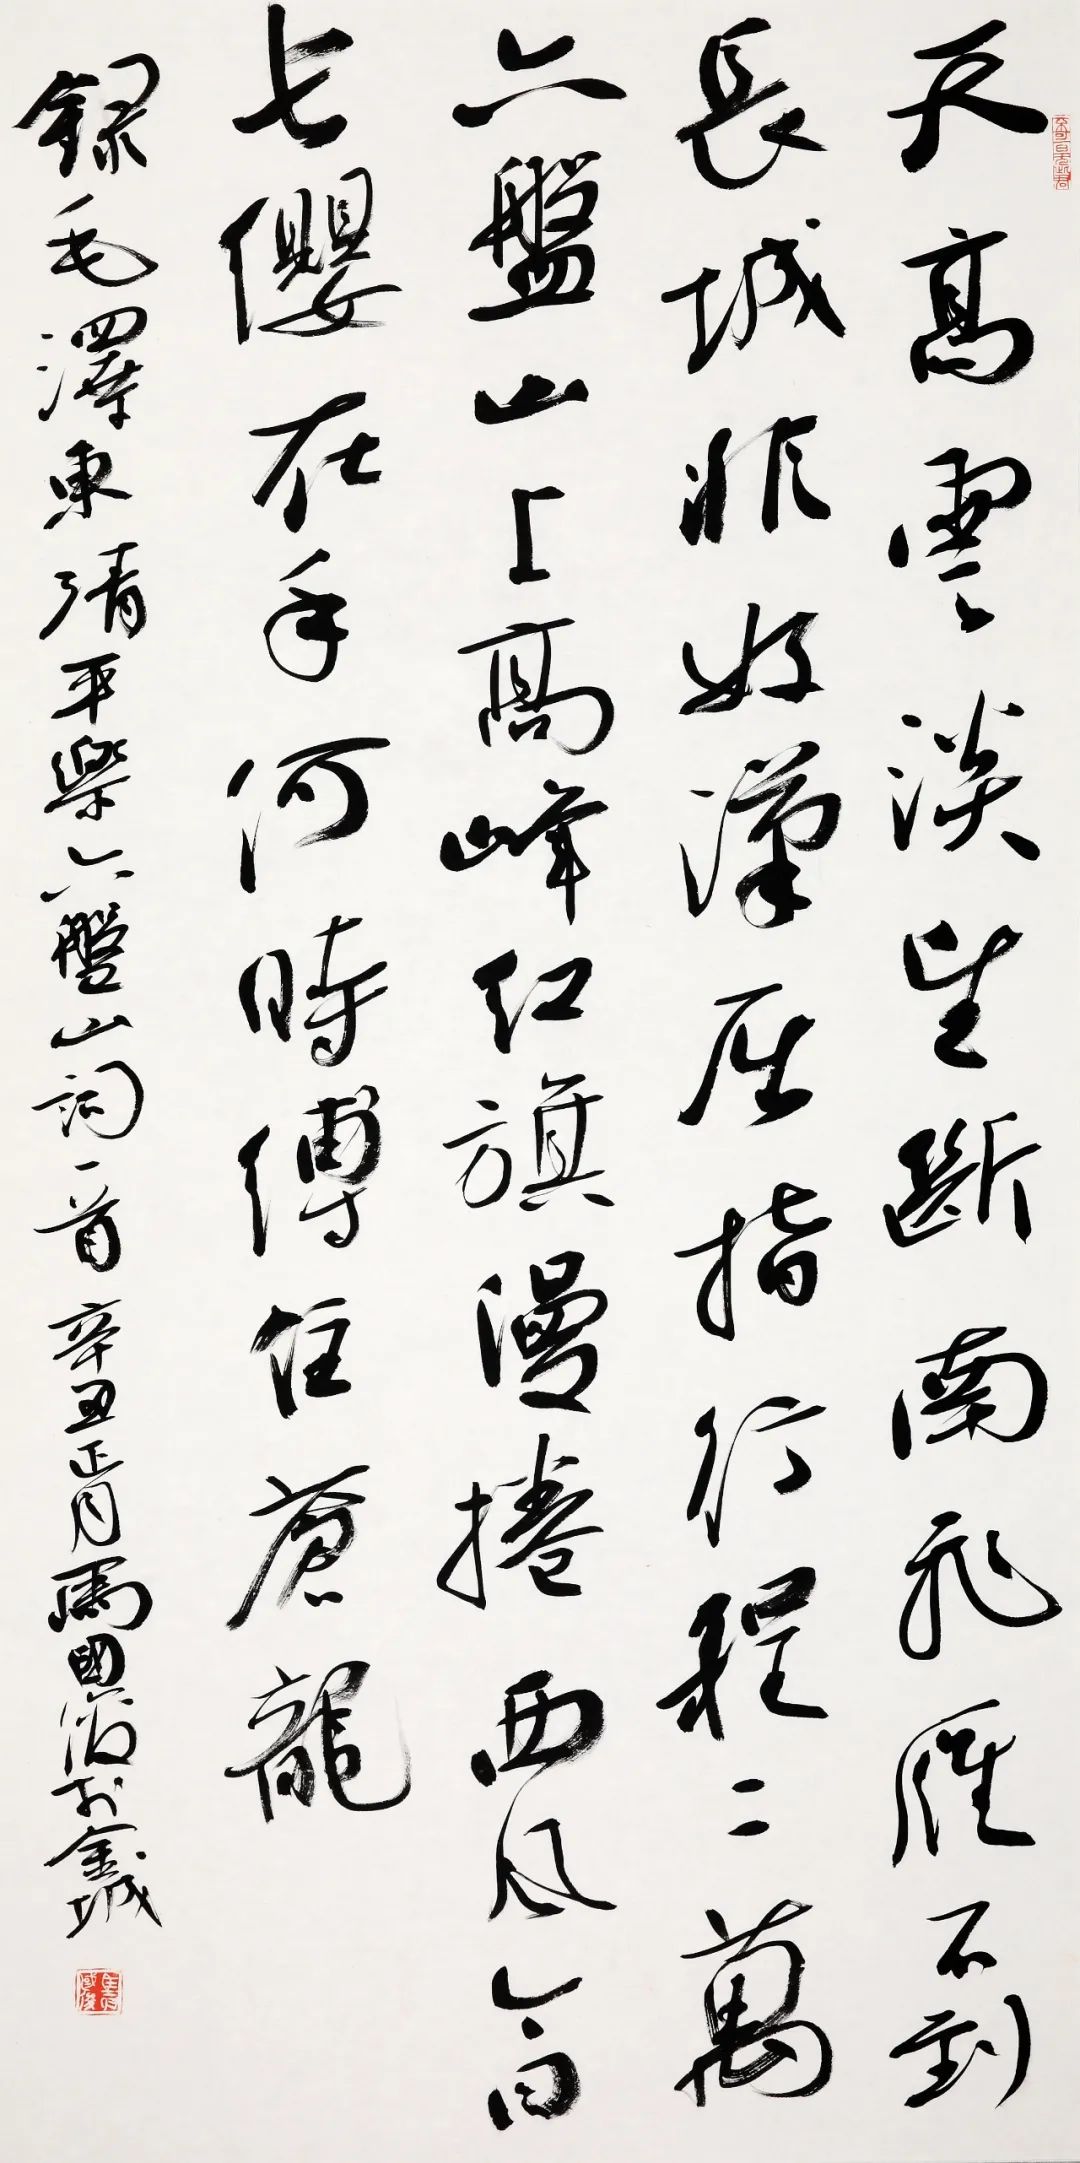 天高雲淡望斷南飛雁不到
長城非好漢屈指行程二萬
六盤山上高峰紅旗漫捲西風今日
长纓在手何時縛住蒼龍
録毛澤東清平樂六盤山詞一首 辛丑正月馬國俊於金城